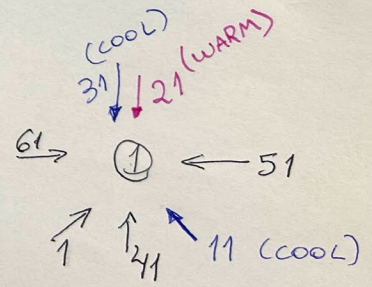 (COOL)
31 21 (WARM)
61 1 51
1 41 11 (COOL)